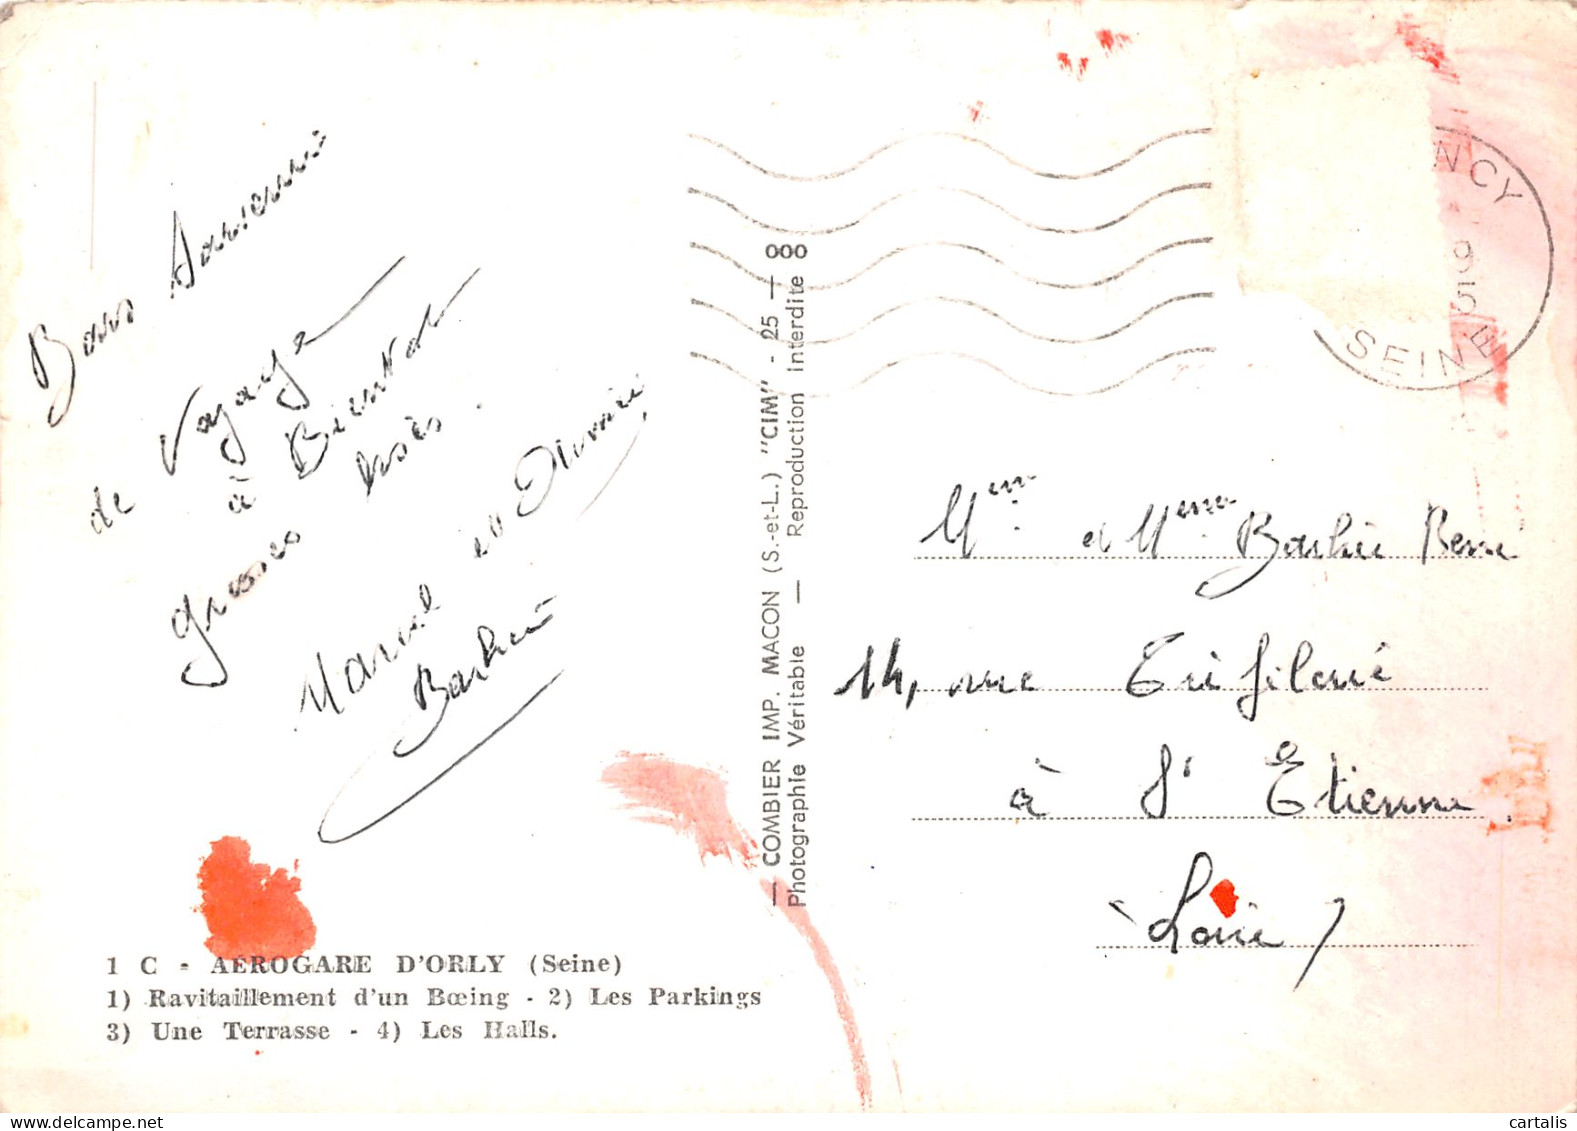 Bons Souvenirs
de Voyage
à Bientot
grosses bises.
Marcel et
Barbier
000
— COMBIER IMP. MACON (S.-et-L.) "CIM" - 25 —
Photographie Véritable — Reproduction interdite
NCY
SEINE
Mem et Meme Barbier René
14, rue
à St Etienne
Loire
1 C - AÉROGARE D'ORLY (Seine)
1) Ravitaillement d'un Bœing - 2) Les Parkings
3) Une Terrasse - 4) Les Halls.
cartalis